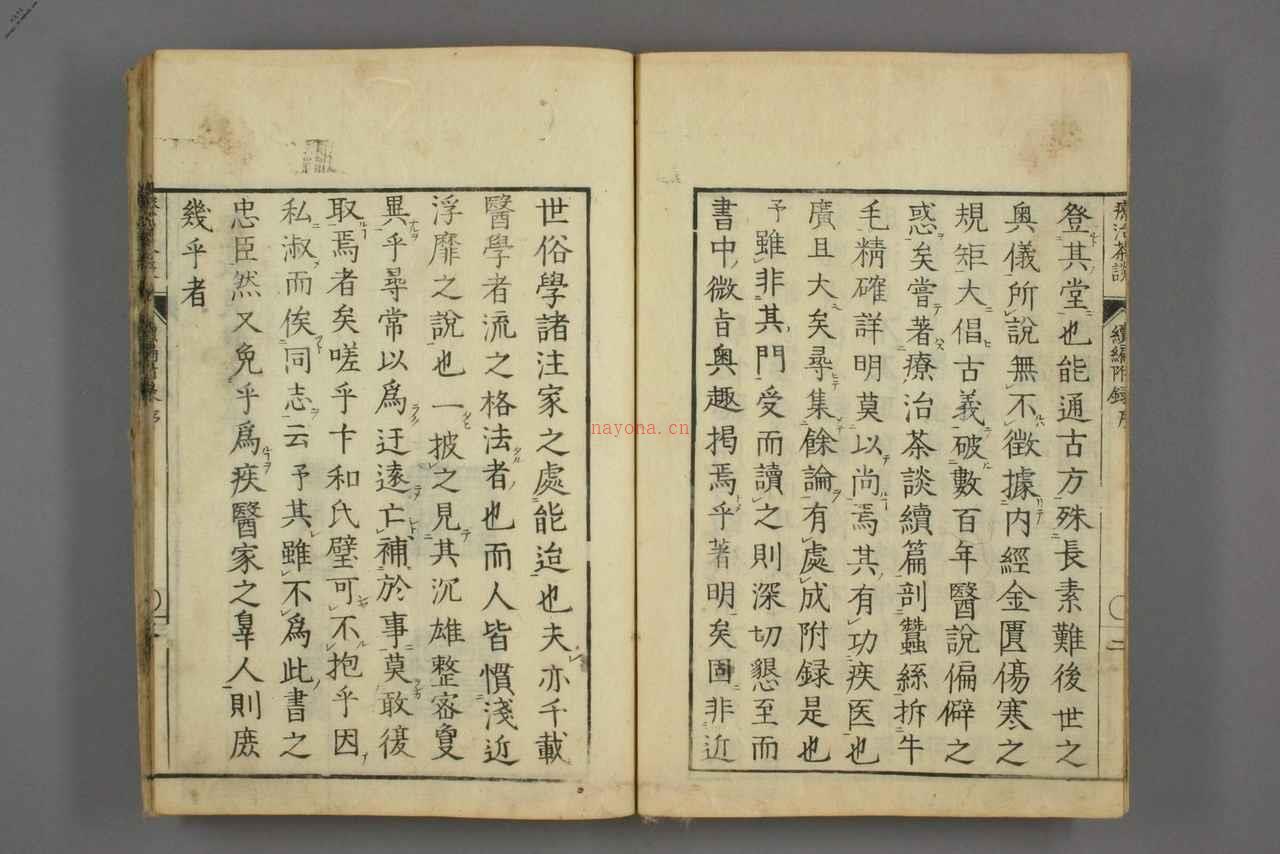 療治茶談
續編附録序
二
登其堂也能通古方殊長素難後世之
奥儀所說無不徴據内經金匱傷寒之
規矩大倡古義破數百年醫說偏僻之
惑矣嘗著療治茶談續篇剖蠶絲拆牛
毛精確詳明莫以尚焉其有功疾医也
廣且大矣尋集餘論有處成附録是也
予雖非其門受而讀之則深切懇至而
書中微旨奥趣掲焉乎著明矣固非近
世俗學諸注家之處能迨也夫亦千載
醫學者流之格法者也而人皆慣淺近
浮靡之說也一披之見其沉雄整密敻
異乎尋常以爲迂遠亡補於事莫敢復
取焉者矣嗟乎卞和氏璧可不抱乎因
私淑而俟同志云予其雖不爲此書之
忠臣然又免乎爲疾醫家之辠人則庶
幾乎者
nayona.cn